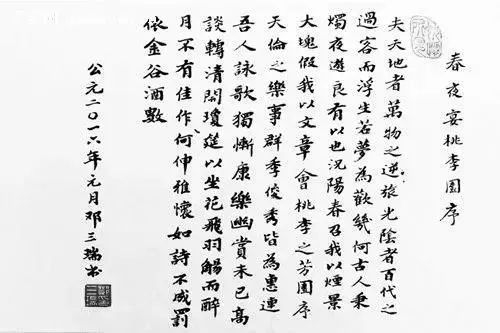 春夜宴桃李園序
夫天地者萬物之逆旅光陰者百代之
過客而浮生若夢為歡幾何古人秉
燭夜遊良有以也況陽春召我以煙景
大塊假我以文章會桃李之芳園序
天倫之樂事群季俊秀皆為惠連
吾人詠歌獨慚康樂幽賞未已高
談轉清開瓊筵以坐花飛羽觴而醉
月不有佳作何伸雅懷如詩不成罰
依金谷酒數
公元二〇一六年元月鄧三瑞书